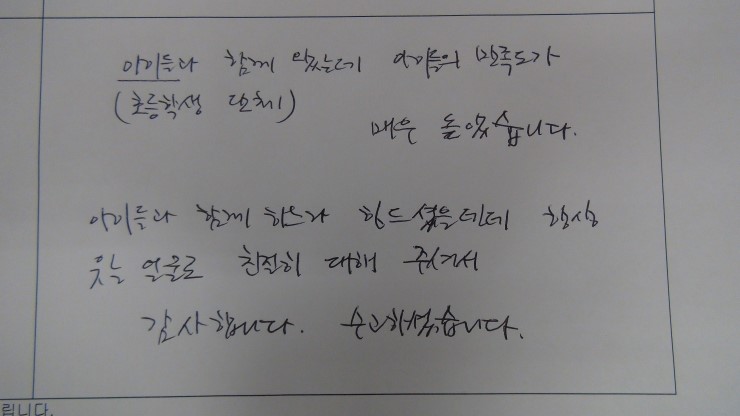 아이들과 함께 왔는데 아이들의 만족도가
(초등학생 단체)
매우 높았습니다.
아이들과 함께 하느라 힘드셨을텐데 항상
웃는 얼굴로 친절히 대해 주셔서
감사합니다. 수고하셨습니다.
립니다.